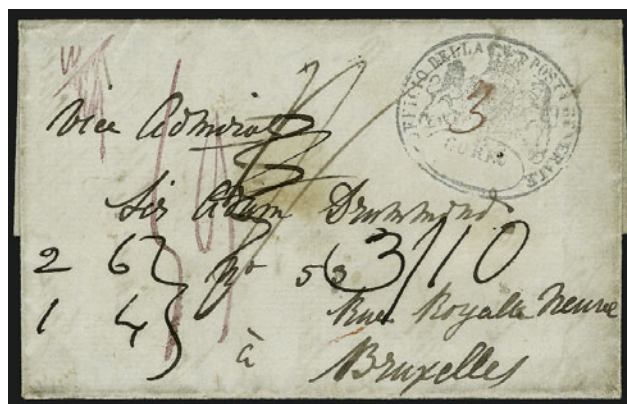 UFFICIO DELLA POSTA GENERALE
CORFU
3
Vice Admiral
Sir Adam Drummond
2 6 No 53 3/10
1 4 Rue Royalle Neuve
à Bruxelles